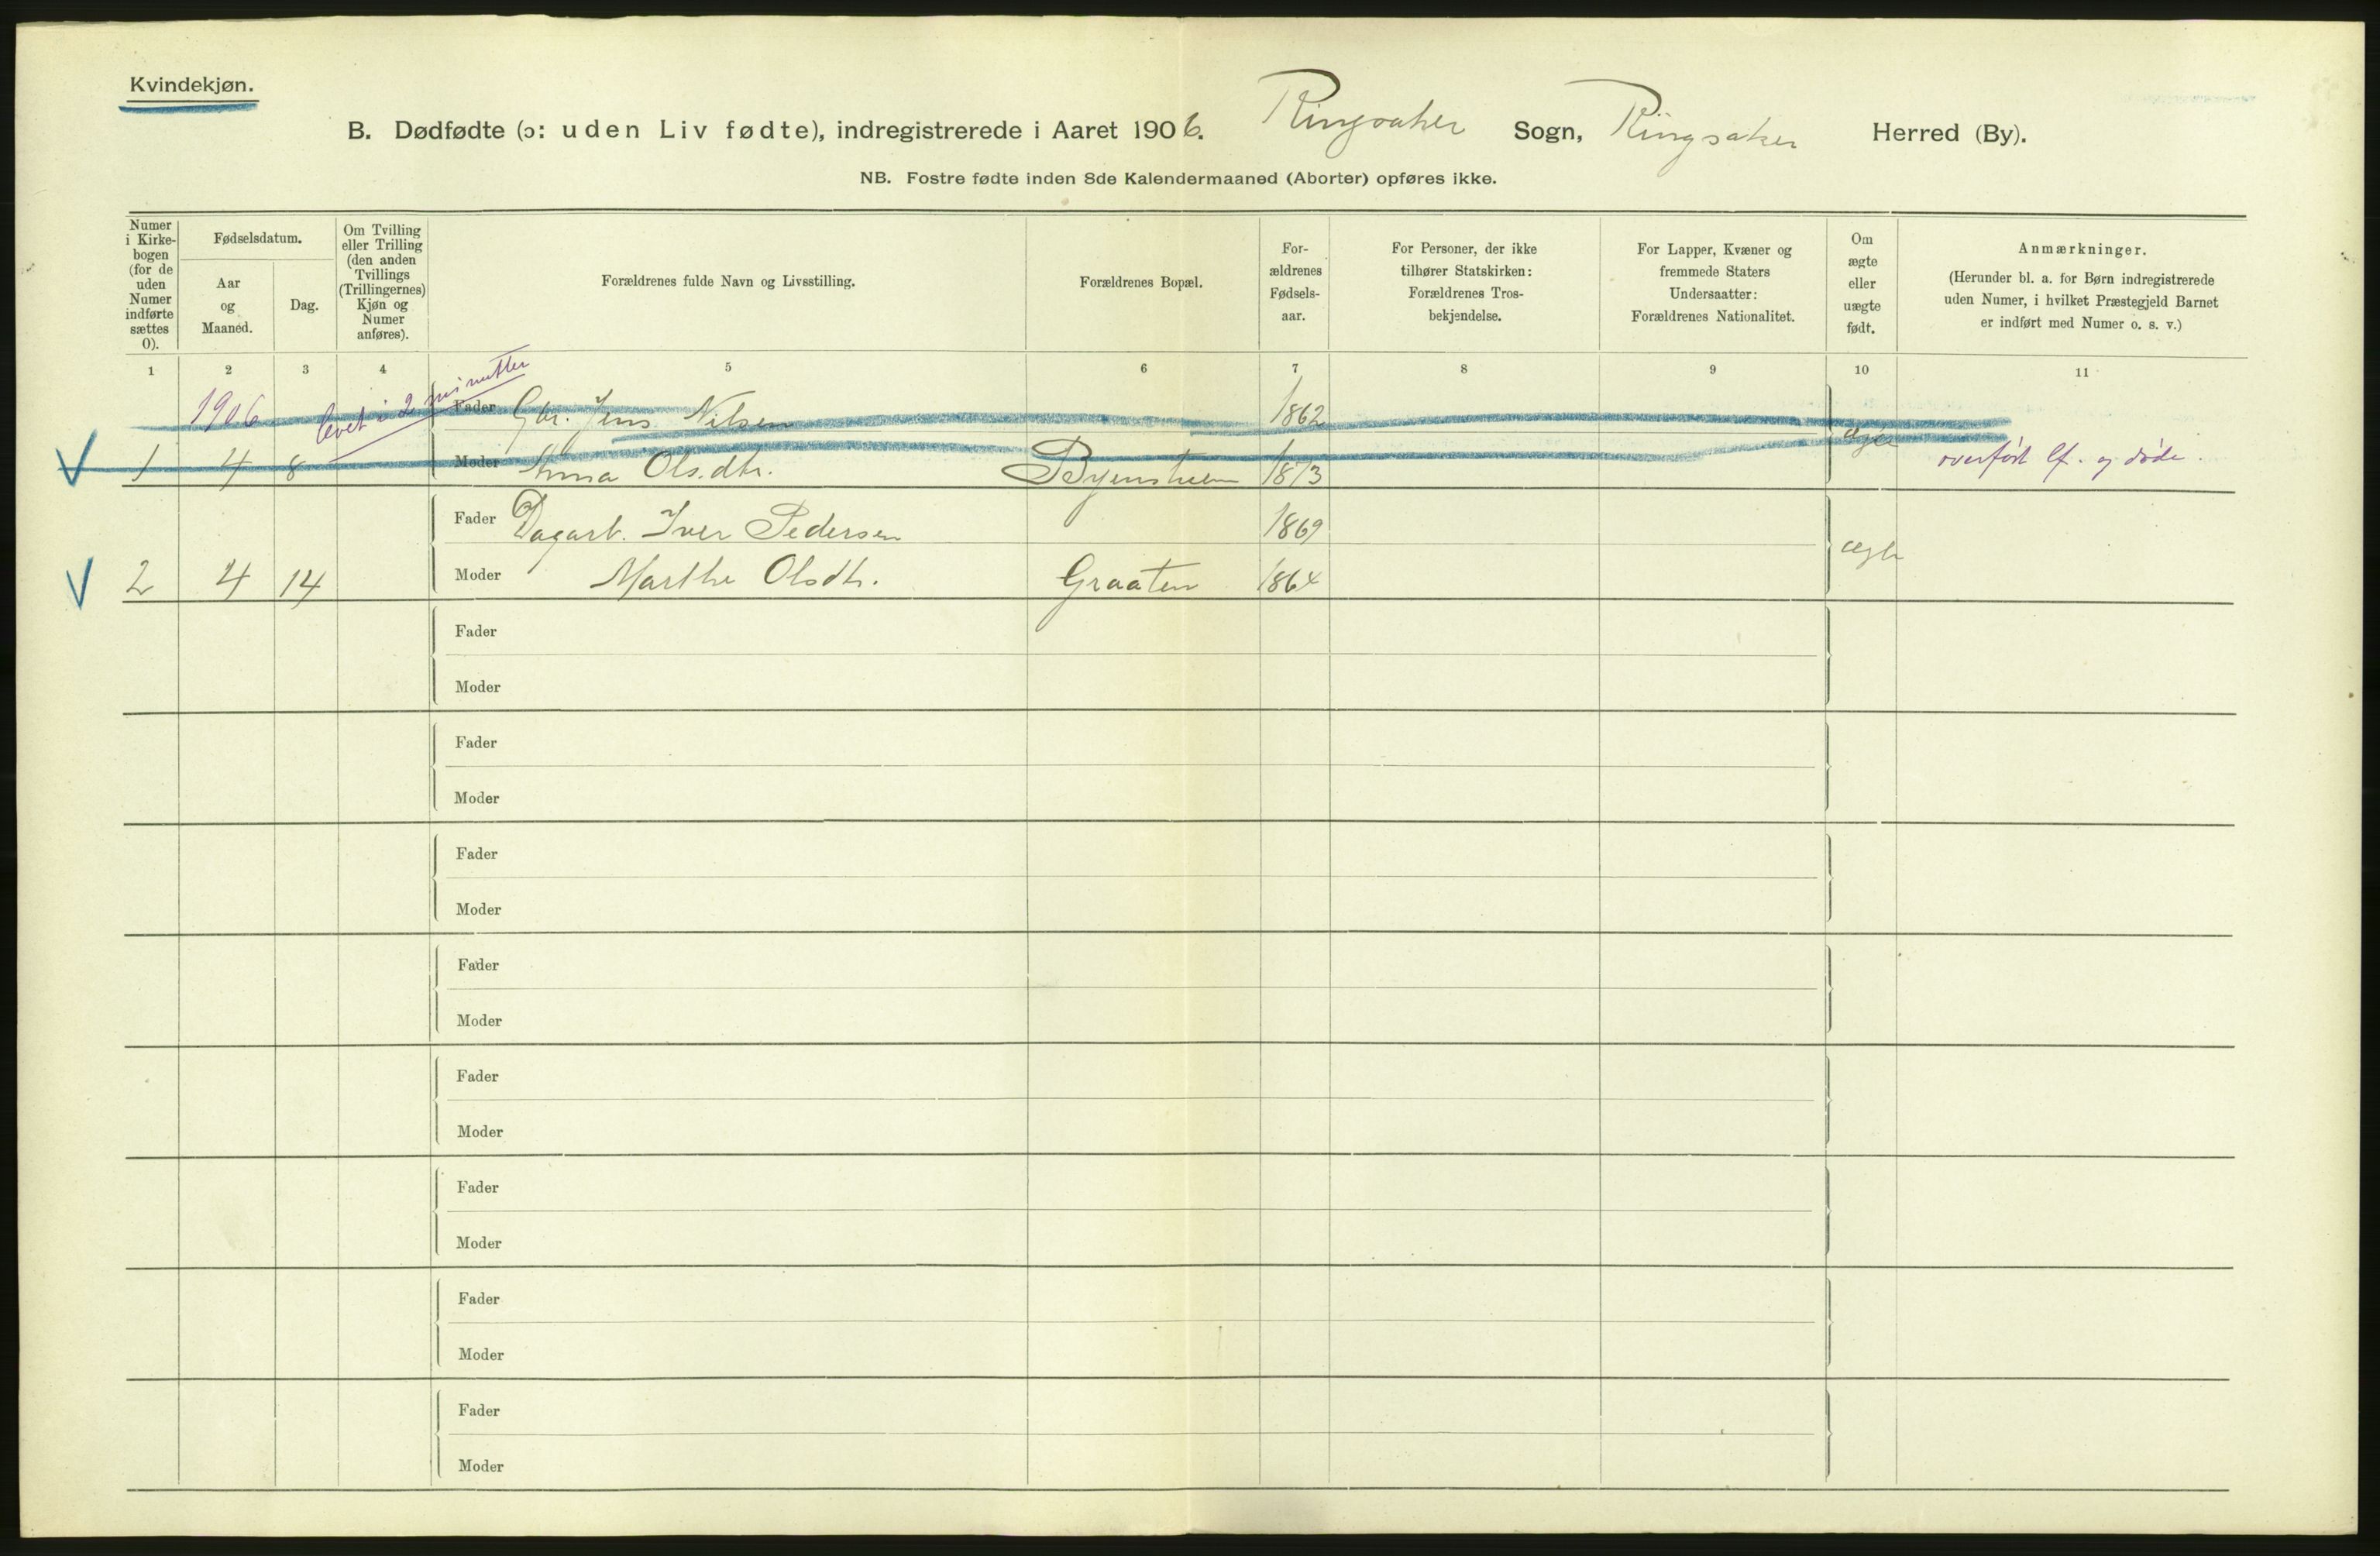 Kvindekjøn.
B. Dødfødte (ɔ: uden Liv fødte), indregistrerede i Aaret 1906. Ringsaker Sogn, Ringsaker Herred (By).
NB. Fostre fødte inden 8de Kalendermaaned (Aborter) opføres ikke.
Numer
i Kirke-
bogen
(for de
uden
Numer
indførte
sættes
0).
Fødselsdatum.
Aar
og
Maaned.
Dag.
Om Tvilling
eller Trilling
(den anden
Tvillings
(Trillingernes)
Kjøn og
Numer
anføres).
Forældrenes fulde Navn og Livsstilling.
Forældrenes Bopæl.
For-
ældrenes
Fødsels-
aar.
For Personer, der ikke
tilhører Statskirken:
Forældrenes Tros-
bekjendelse.
For Lapper, Kvæner og
fremmede Staters
Undersaatter:
Forældrenes Nationalitet.
Om
ægte
eller
uægte
født.
Anmærkninger.
(Herunder bl. a. for Børn indregistrerede
uden Numer, i hvilket Præstegjeld Barnet
er indført med Numer o. s. v.)
1 2 3 4 5 6 7 8 9 10 11
1906 levet i 2 minutter Fader Gbr. Jens Nilsen 1862 ægte
V 1 4 8 Moder Anna Olsdtr. 1873 overført lf. og døde.
Fader Dagarb. Iver Pedersen 1869 ægte
V 2 4 14 Moder Marthe Olsdtr. Graaten 1864
Fader
Moder
Fader
Moder
Fader
Moder
Fader
Moder
Fader
Moder
Fader
Moder
Fader
Moder
Fader
Moder